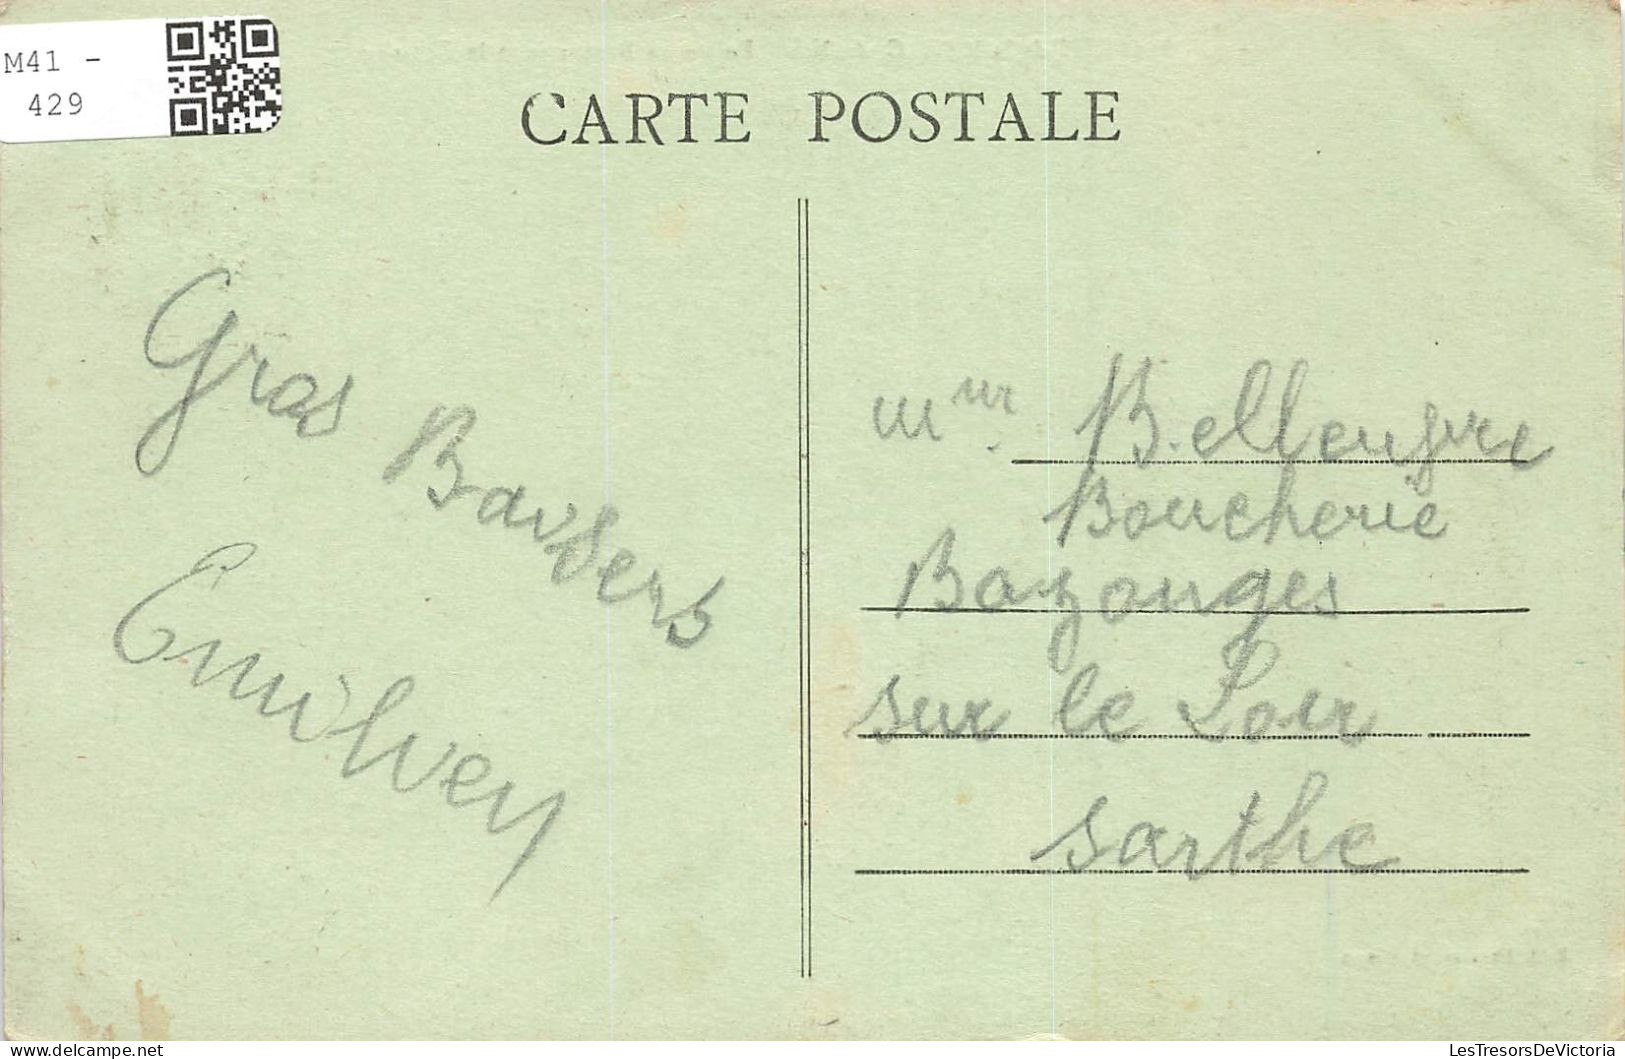 M41 -
429
CARTE POSTALE
Gros Baisers
Emilvey
Mmur Belleuvre
Boucherie
Bazouges
sur le Loir
Sarthe
LesTresorsDeVictoria